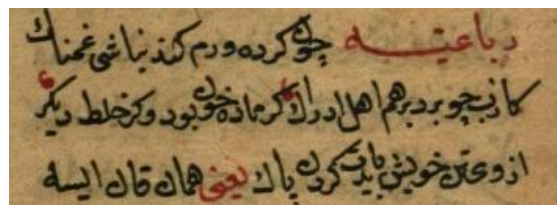 رباعیه چون کرده ورم کند نباشی غمناك
چو اهل ادراك کر ماده خون بود وکر خلط دیکر
خویش باید کردن پاك یعنی همان قان ایسه